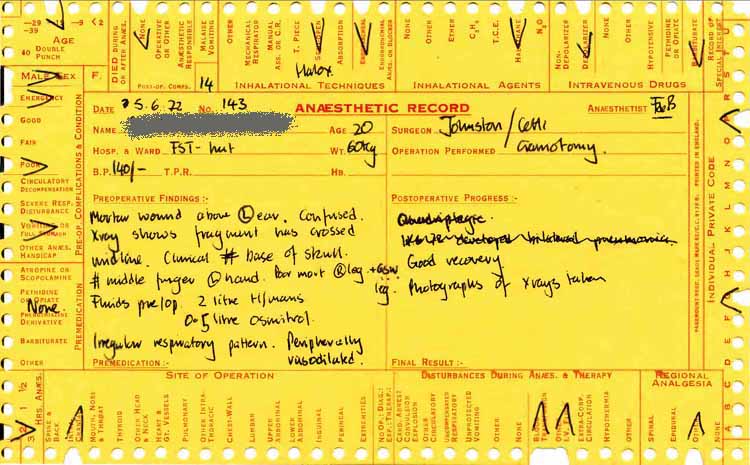 -29
-39
-9
<2
40
AGE
DOUBLE
PUNCH
MALE SEX F.
DIED DURING
OR AFTER ANÆS.
NONE
OPERATIVE
OR OTHER
ANÆSTHETIC
RESPONSIBLE
MALAISE
VOMITING
OTHER
POST-OP. COMPS.
14
MECHANICAL
RESPIRATOR
MANUAL
ASS. OR C.R.
T. PIECE
ABSORPTION
ENDOBRONCHIAL
ANÆS. OR BLOCKER
Halox.
INHALATIONAL TECHNIQUES
OTHER
ETHER
C₃H₆
T.C.E.
N₂O
INHALATIONAL AGENTS
NON-
DEPOLARIZER
DEPOLARIZER
OTHER
HYPOTENSIVE
PETHIDINE
OR OPIATE
BARBITURATE
INTRAVENOUS DRUGS
RECORD OF
SPECIAL INTEREST
EMERGENCY
GOOD
FAIR
POOR
CIRCULATORY
DECOMPENSATION
SEVERE RESP.
DISTURBANCE
VOMITING OR
FULL STOMACH
OTHER ANÆS.
HANDICAP
PRE-OP. COMPLICATIONS & CONDITION
ATROPINE OR
SCOPOLAMINE
PETHIDINE
OR OPIATE
None.
PHENOTHIAZINE
DERIVATIVE
BARBITURATE
OTHER
PREMEDICATION
DATE 25.6.72 No. 143 ANÆSTHETIC RECORD ANÆSTHETIST F&B
NAME AGE 20 SURGEON Johnston /
HOSP. & WARD FST- hut WT. 60kg OPERATION PERFORMED Craniotomy.
B.P. 140/- T.P.R. HB.
PREOPERATIVE FINDINGS :-
Mortar wound above Ⓛ ear. Confused.
Xray shows fragment has crossed
midline. Clinical # base of skull.
# middle finger Ⓛ hand. Ⓡ leg. + GSW
leg.
Fluids pre/op. 2 litre H/mans
0.5 litre osmitrol.
Irregular respiratory pattern. Peripherally
vasodilated.
PREMEDICATION :-
POSTOPERATIVE PROGRESS :-
Quadriplegic.
developed bilateral pneumonia.
Good recovery
Photographs of Xrays taken
FINAL RESULT :-
PRINTED IN ENGLAND.
INDIVIDUAL PRIVATE CODE
3 2 1 ½
HRS. ANÆS.
SITE OF OPERATION
SPINE &
BACK
MOUTH, NOSE
& THROAT
THYROID
OTHER HEAD
& NECK
HEART &
GT. VESSELS
PULMONARY
OTHER INTRA-
THORACIC
CHEST-WALL
LUMBAR
UPPER
ABDOMINAL
LOWER
ABDOMINAL
INGUINAL
PERINEAL
EXTREMITIES
NO OP.: DIAG.:
ESP.: THERAP.:
DISTURBANCES DURING ANÆS. & THERAPY
CARD. ARREST
CONVULSION
EXPLOSION
OTHER
CIRCULATORY
UNCOMPENSATED
RESPIRATORY
UNPROTECTED
VOMITING
OTHER
NONE
EXTRA-CORP.
CIRCULATION
HYPOTHERMIA
OTHER
REGIONAL
ANALGESIA
SPINAL
EPIDURAL
OTHER
A B C D E F